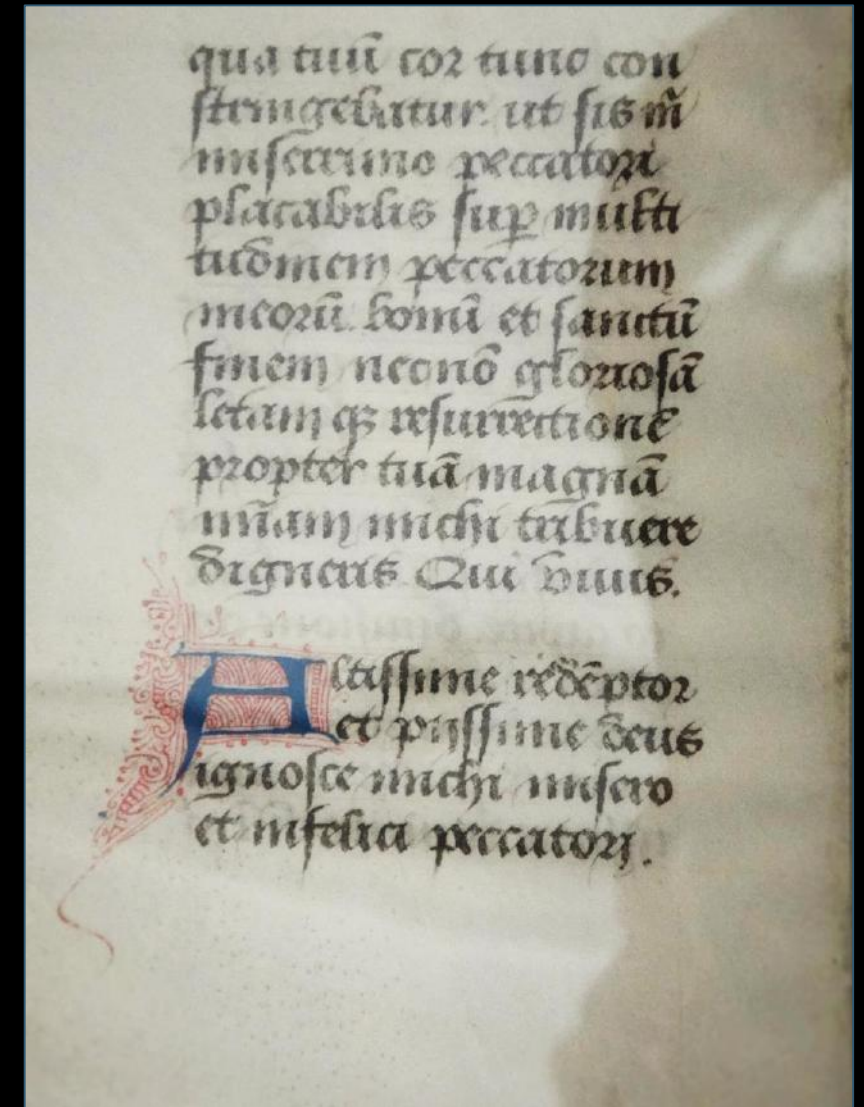 qua tuū cor tunc con
stringebatur. ut sis m̄
miserrimo peccatori
placabilis sup̱ multi
tudinem peccatorum
meorū. bonū et sanctū
finem necnō gloriosā
letam qȝ resurrectionē
propter tuā magnā
mīam michi tribuere
digneris Qui viuis.
Altissime redēptor
et pijssime deus
ignosce michi misero
et infelici peccatori.